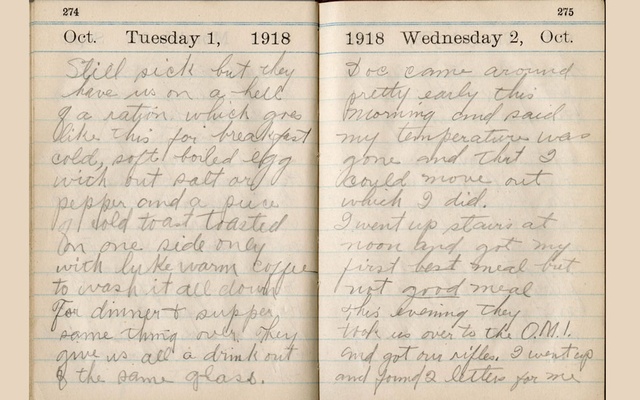 274
Oct. Tuesday 1, 1918
Still sick but they
have us on a hell
of a ration which goes
like this for breakfast
cold, soft boiled egg
with out salt or
pepper and a piece
of cold toast toasted
on one side only
with luke warm coffee
to wash it all down
For dinner & supper
same thing over. They
give us all a drink out
of the same glass.
275
1918 Wednesday 2, Oct.
Doc came around
pretty early this
morning and said
my temperature was
gone and that I
could move out
which I did.
I went up stairs at
noon and got my
first best meal but
not good meal
this evening they
took us over to the O.M.I.
and got our rifles. I went up
and found 2 letters for me